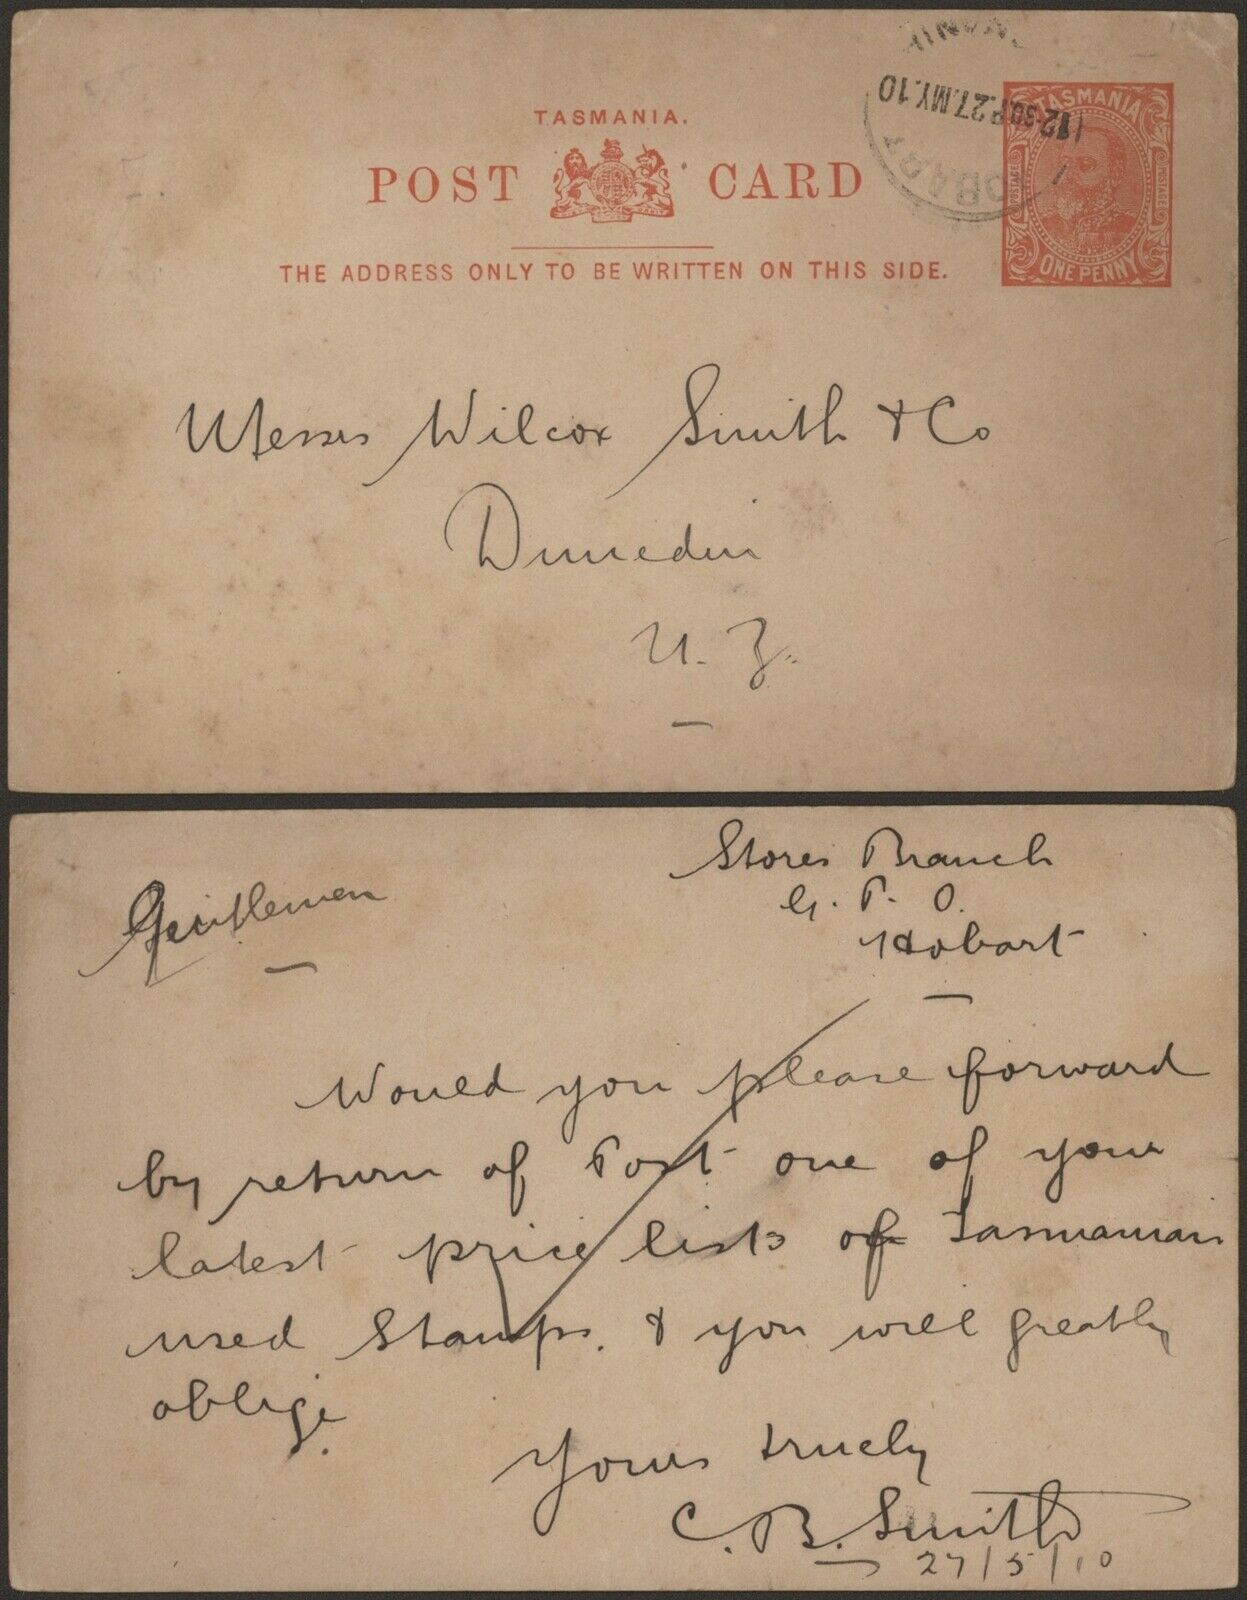 TASMANIA.
POST CARD
THE ADDRESS ONLY TO BE WRITTEN ON THIS SIDE.
HOBART
12-30P.27.MY.10
TASMANIA
POSTAGE POSTAGE
ONE PENNY
Messrs Wilcox Smith & Co
Dunedin
N. Z.
Stores Branch
G. P. O.
Hobart
Gentlemen
Would you please forward
by return of Post one of your
latest price lists of Tasmanian
used Stamps. & you will greatly
oblige.
Yours truely
C. B. Smith
27/5/10